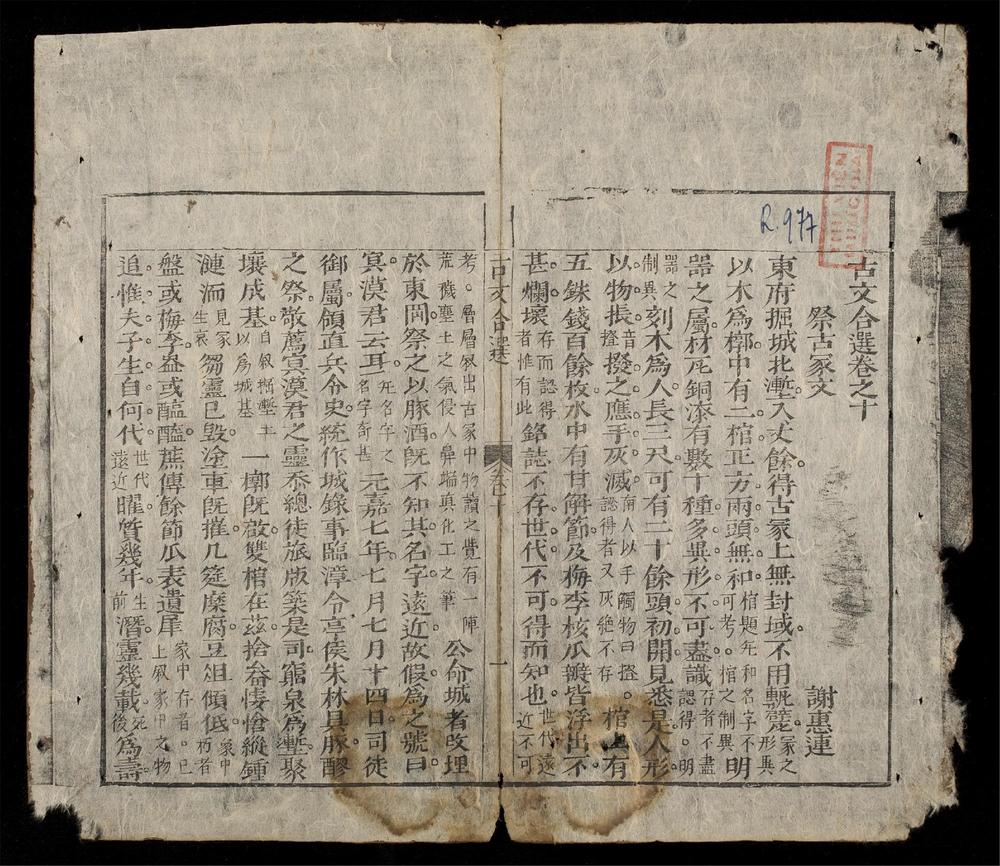 R.977
古文合選卷之十
祭古冢文
謝惠連
東府掘城北塹入丈餘得古冢上無封域不用甎甓冢之形異
以木爲槨中有二棺正方兩頭無和棺題先和名字不可考。棺之制異明
器之屬材瓦銅漆有數十種多異形不可盡識存者不盡認得。明
器之制異刻木爲人長三尺可有二十餘頭初開見悉是人形
以物掁音橙撥之應手灰滅南人以手觸物曰掁。認得者又灰絶不存棺上有
五銖錢百餘枚水中有甘𦼮節及梅李核瓜瓣皆浮出不
甚爛壞存而認得者惟有此銘誌不存世代不可得而知也世代遠近不可
古文合選
卷之十
一
考。層層叙出古冢中物讀之覺有一陣荒穢塵土之氣侵人鼻端眞化工之筆公命城者改埋
於東岡祭之以豚酒旣不知其名字遠近故假爲之號曰
冥漠君云耳死名年之名字奇甚元嘉七年七月十四日司徒
御屬領直兵令史統作城錄事臨漳令亭侯朱林具豚醪
之祭敬薦冥漠君之靈忝總徒旅版築是司窮泉爲塹聚
壤成基自叙掘塹土以爲城基一槨旣啟雙棺在茲捨畚悽愴縱鍤
漣洏見冢生哀芻靈已毀塗車旣摧几筵糜腐豆俎傾低冢中朽者
盤或梅李盎或醯醢蔗傳餘節瓜表遺犀冢中存者。已上叙冢中之物
追惟夫子生自何代世代遠近曜質幾年生前潛靈幾載死後爲壽